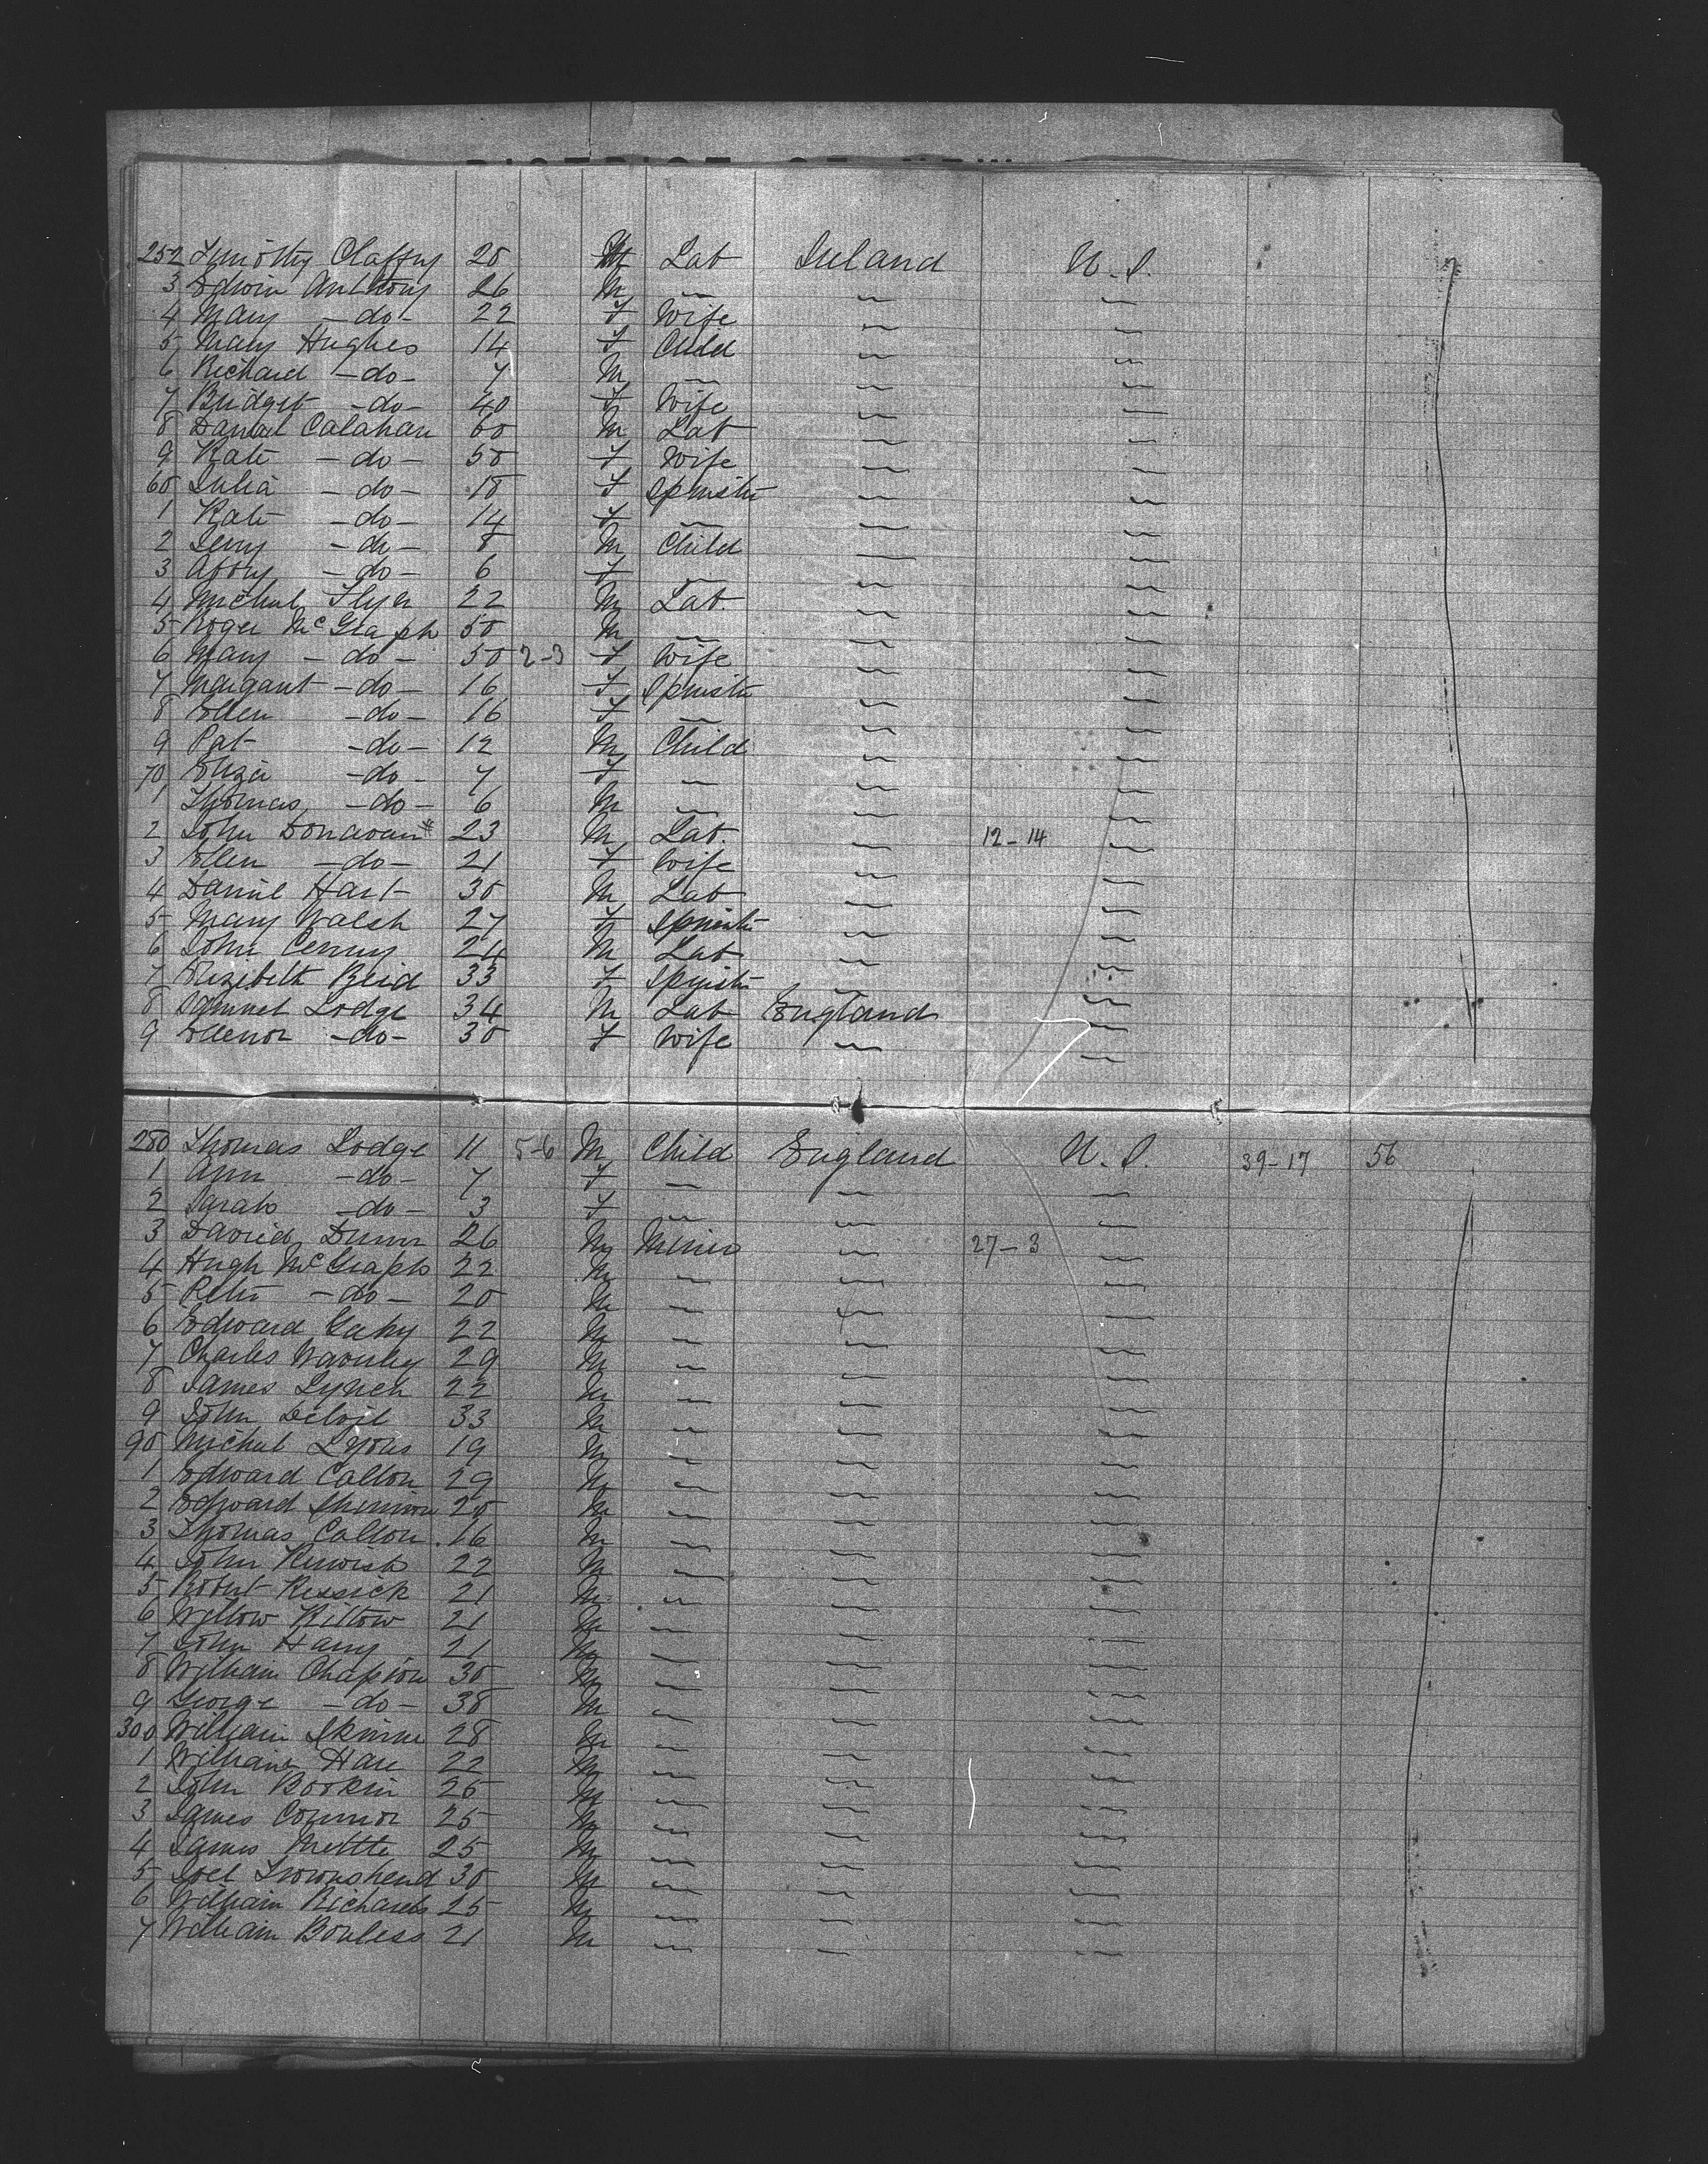 252 Timothy Claffey 20 M Lab Ireland U.S.
3 Edwin Anthony 26 M " " "
4 Mary -do- 22 F Wife " "
5 Mary Hughes 14 F Child " "
6 Richard -do- 7 M " " "
7 Bridget -do- 40 F Wife " "
8 Daniel Calahan 60 M Lab " "
9 Kate -do- 50 F Wife " "
60 Julia -do- 18 F Spinster " "
1 Kate -do- 14 F " " "
2 Jerry -do- 8 M Child " "
3 Abby -do- 6 F " " "
4 Michal 22 M Lab. " "
5 Roger McGraph 50 M " " "
6 Mary -do- 50 2-3 F Wife " "
7 Margaret -do- 16 F Spinster " "
8 Ellen -do- 16 F " " "
9 Pat -do- 12 M Child " "
70 Eliza -do- 7 F " " "
1 Thomas -do- 6 M " " "
2 John Donavan # 23 M Lab. " 12-14 "
3 Ellen -do- 21 F Wife " "
4 Daniel Hart 30 M Lab " "
5 Mary Walsh 27 F Spinster " "
6 John 24 M Lab " "
7 Elizabeth Reid 33 F Spinster " "
8 Samuel Lodge 34 M Lab England "
9 Ellenor -do- 30 F Wife " "
280 Thomas Lodge 11 5-6 M Child England U.S. 39-17 56
1 Ann -do- 7 F " " "
2 Sarah -do- 3 F " " "
3 David Dunn 26 M Miner " 27-3 "
4 Hugh McGraph 22 M " " "
5 Peter -do- 20 M " " "
6 Edward 22 M " " "
7 Charles 29 M " " "
8 James Lynch 22 M " " "
9 John 33 M " " "
90 Michal Lyons 19 M " " "
1 Edward Colton 29 M " " "
2 Edward 20 M " " "
3 Thomas Colton 16 M " " "
4 John Renwick 22 M " " "
5 Robert Kessick 21 M " " "
6 Kiltow 21 M " " "
7 John Harry 21 M " " "
8 William 30 M " " "
9 George -do- 38 M " " "
300 William Skinner 28 M " " "
1 William Hare 22 M " " "
2 John Bookin 25 M " " "
3 James Connor 25 M " " "
4 James 25 M " " "
5 Joel Townshend 30 M " " "
6 William Richards 25 M " " "
7 William Bonless 21 M " " "